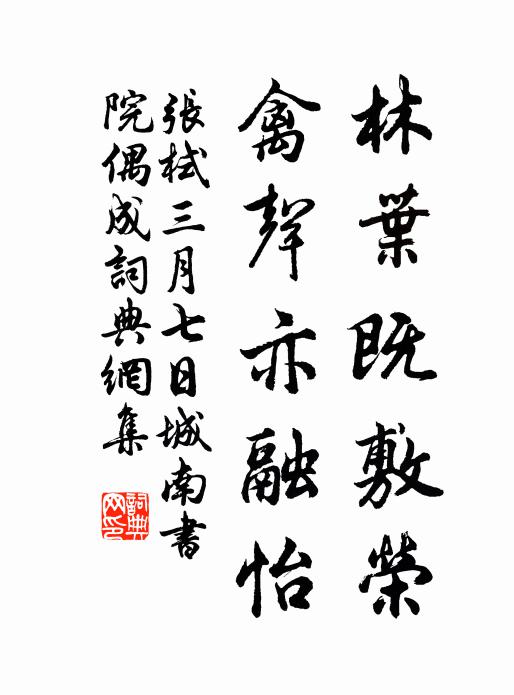 林葉既敷榮
禽聲亦融怡
張栻三月七日城南書
院偶成詞典網集
詞典
网印